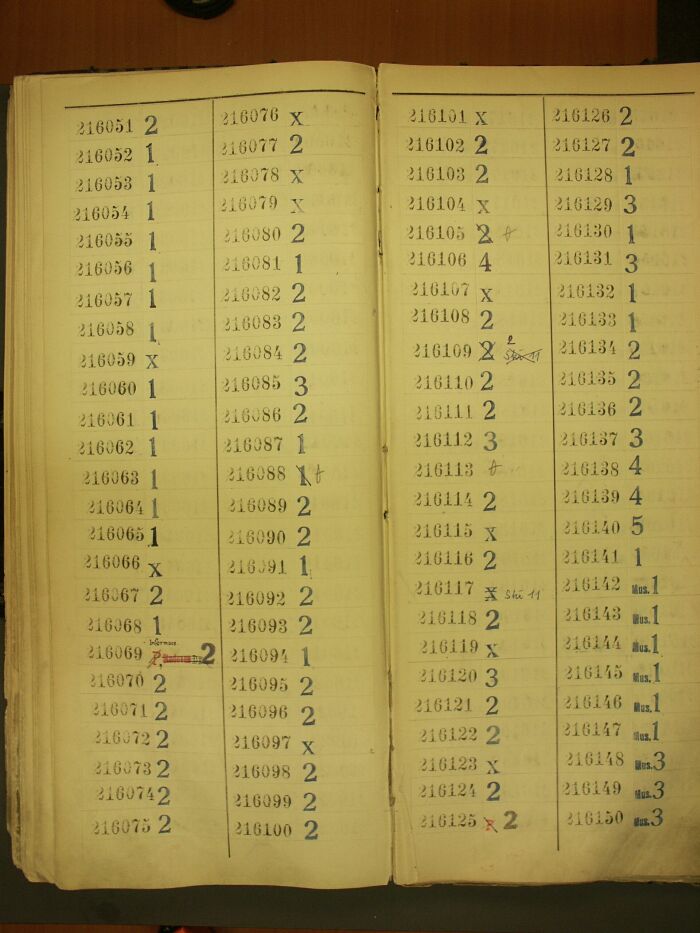 216051 2
216052 1
216053 1
216054 1
216055 1
216056 1
216057 1
216058 1
216059 x
216060 1
216061 1
216062 1
216063 1
216064 1
216065 1
216066 x
216067 2
216068 1
216069 2
216070 2
216071 2
216072 2
216073 2
216074 2
216075 2
216076 x
216077 2
216078 x
216079 x
216080 2
216081 1
216082 2
216083 2
216084 2
216085 3
216086 2
216087 1
216088 1 t
216089 2
216090 2
216091 1
216092 2
216093 2
216094 1
216095 2
216096 2
216097 x
216098 2
216099 2
216100 2
216101 x
216102 2
216103 2
216104 x
216105 2 t
216106 4
216107 x
216108 2
216109 2 2 Ski 11
216110 2
216111 2
216112 3
216113 t
216114 2
216115 x
216116 2
216117 x Ski 11
216118 2
216119 x
216120 3
216121 2
216122 2
216123 x
216124 2
216125 P 2
216126 2
216127 2
216128 1
216129 3
216130 1
216131 3
216132 1
216133 1
216134 2
216135 2
216136 2
216137 3
216138 4
216139 4
216140 5
216141 1
216142 Mus. 1
216143 Mus. 1
216144 Mus. 1
216145 Mus. 1
216146 Mus. 1
216147 Mus. 1
216148 Mus. 3
216149 Mus. 3
216150 Mus. 3